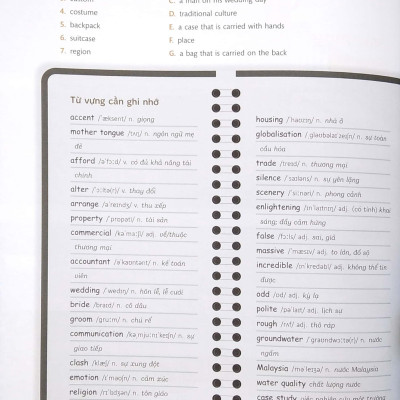 C. a man on his wedding day
4. costume
D. traditional culture
5. backpack
E. a case that is carried with hands
6. suitcase
F. place
7. region
G. a bag that is carried on the back
Từ vựng cần ghi nhớ
accent /ˈæksent/ n. giọng
mother tongue /tʌŋ/ n. ngôn ngữ mẹ
đẻ
afford /əˈfɔːd/ v. có đủ khả năng tài
chính
alter /ˈɔːltə(r)/ v. thay đổi
arrange /əˈreɪndʒ/ v. thu xếp
property /ˈprɒpəti/ n. tài sản
commercial /kəˈmɜːʃl/ adj. về/thuộc
thương mại
accountant /əˈkaʊntənt/ n. kế toán
viên
wedding /ˈwedɪŋ/ n. hôn lễ, lễ cưới
bride /braɪd/ n. cô dâu
groom /ɡruːm/ n. chú rể
communication /kəˌmjuːnɪˈkeɪʃn/ n. sự
giao tiếp
clash /klæʃ/ n. sự xung đột
emotion /ɪˈməʊʃn/ n. cảm xúc
religion /rɪˈlɪdʒən/ n. tôn giáo
housing /ˈhaʊzɪŋ/ n. nhà ở
globalisation /ˌɡləʊbəlaɪˈzeɪʃn/ n. sự toàn
cầu hóa
trade /treɪd/ n. thương mại
silence /ˈsaɪləns/ n. sự yên lặng
scenery /ˈsiːnəri/ n. phong cảnh
enlightening /ɪnˈlaɪtnɪŋ/ adj. (có tính) khai
sáng; đầy cảm hứng
false /fɔːls/ adj. sai, giả
massive /ˈmæsɪv/ adj. to lớn, đồ sộ
incredible /ɪnˈkredəbl/ adj. không thể tin
được
odd /ɒd/ adj. kỳ lạ
polite /pəˈlaɪt/ adj. lịch sự
rough /rʌf/ adj. thô ráp
groundwater /ˈɡraʊndwɔːtə(r)/ n. nước
ngầm
Malaysia /məˈleɪʒə/ n. nước Malaysia
water quality chất lượng nước
case study việc nghiên cứu một trường